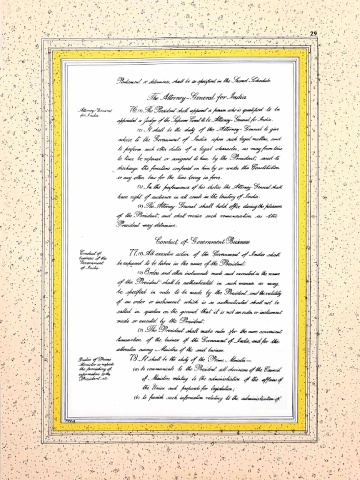 29
Parliament so determines, shall be as specified in the Second Schedule.
The Attorney-General for India
Attorney-General
for India.
76. (1) The President shall appoint a person who is qualified to be
appointed a Judge of the Supreme Court to be Attorney-General for India.
(2) It shall be the duty of the Attorney-General to give
advice to the Government of India upon such legal matters, and
to perform such other duties of a legal character, as may from time
to time be referred or assigned to him by the President, and to
discharge the functions conferred on him by or under this Constitution
or any other law for the time being in force.
(3) In the performance of his duties the Attorney-General shall
have right of audience in all courts in the territory of India.
(4) The Attorney-General shall hold office during the pleasure
of the President, and shall receive such remuneration as the
President may determine.
Conduct of Government Business
Conduct of
business of the
Government
of India.
77. (1) All executive action of the Government of India shall
be expressed to be taken in the name of the President.
(2) Orders and other instruments made and executed in the name
of the President shall be authenticated in such manner as may
be specified in rules to be made by the President, and the validity
of an order or instrument which is so authenticated shall not be
called in question on the ground that it is not an order or instrument
made or executed by the President.
(3) The President shall make rules for the more convenient
transaction of the business of the Government of India, and for the
allocation among Ministers of the said business.
Duties of Prime
Minister as respects
the furnishing of
information to the
President, etc.
78. It shall be the duty of the Prime Minister—
(a) to communicate to the President all decisions of the Council
of Ministers relating to the administration of the affairs of
the Union and proposals for legislation;
(b) to furnish such information relating to the administration of